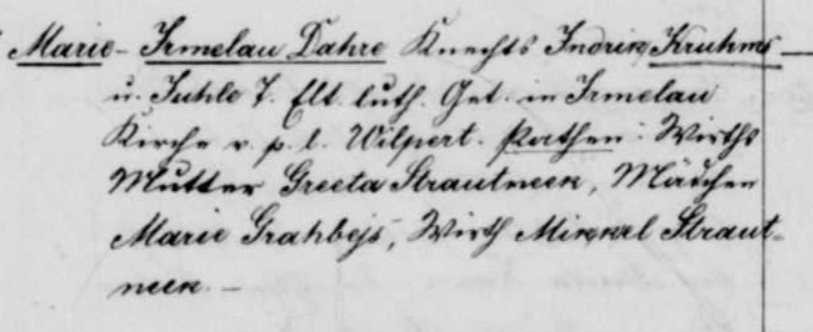 Marie - Irmelau Dahre Knechts Indrik Kruhms —
u. Juhle T. Elt. luth. Get. in Irmelau
Kirche v. p. l. Wilpert. Pathen: Wirths
Mutter Greeta Strautneek, Mädchen
Marie Grahbejs, Wirth Mikkel Straut-
neek. —